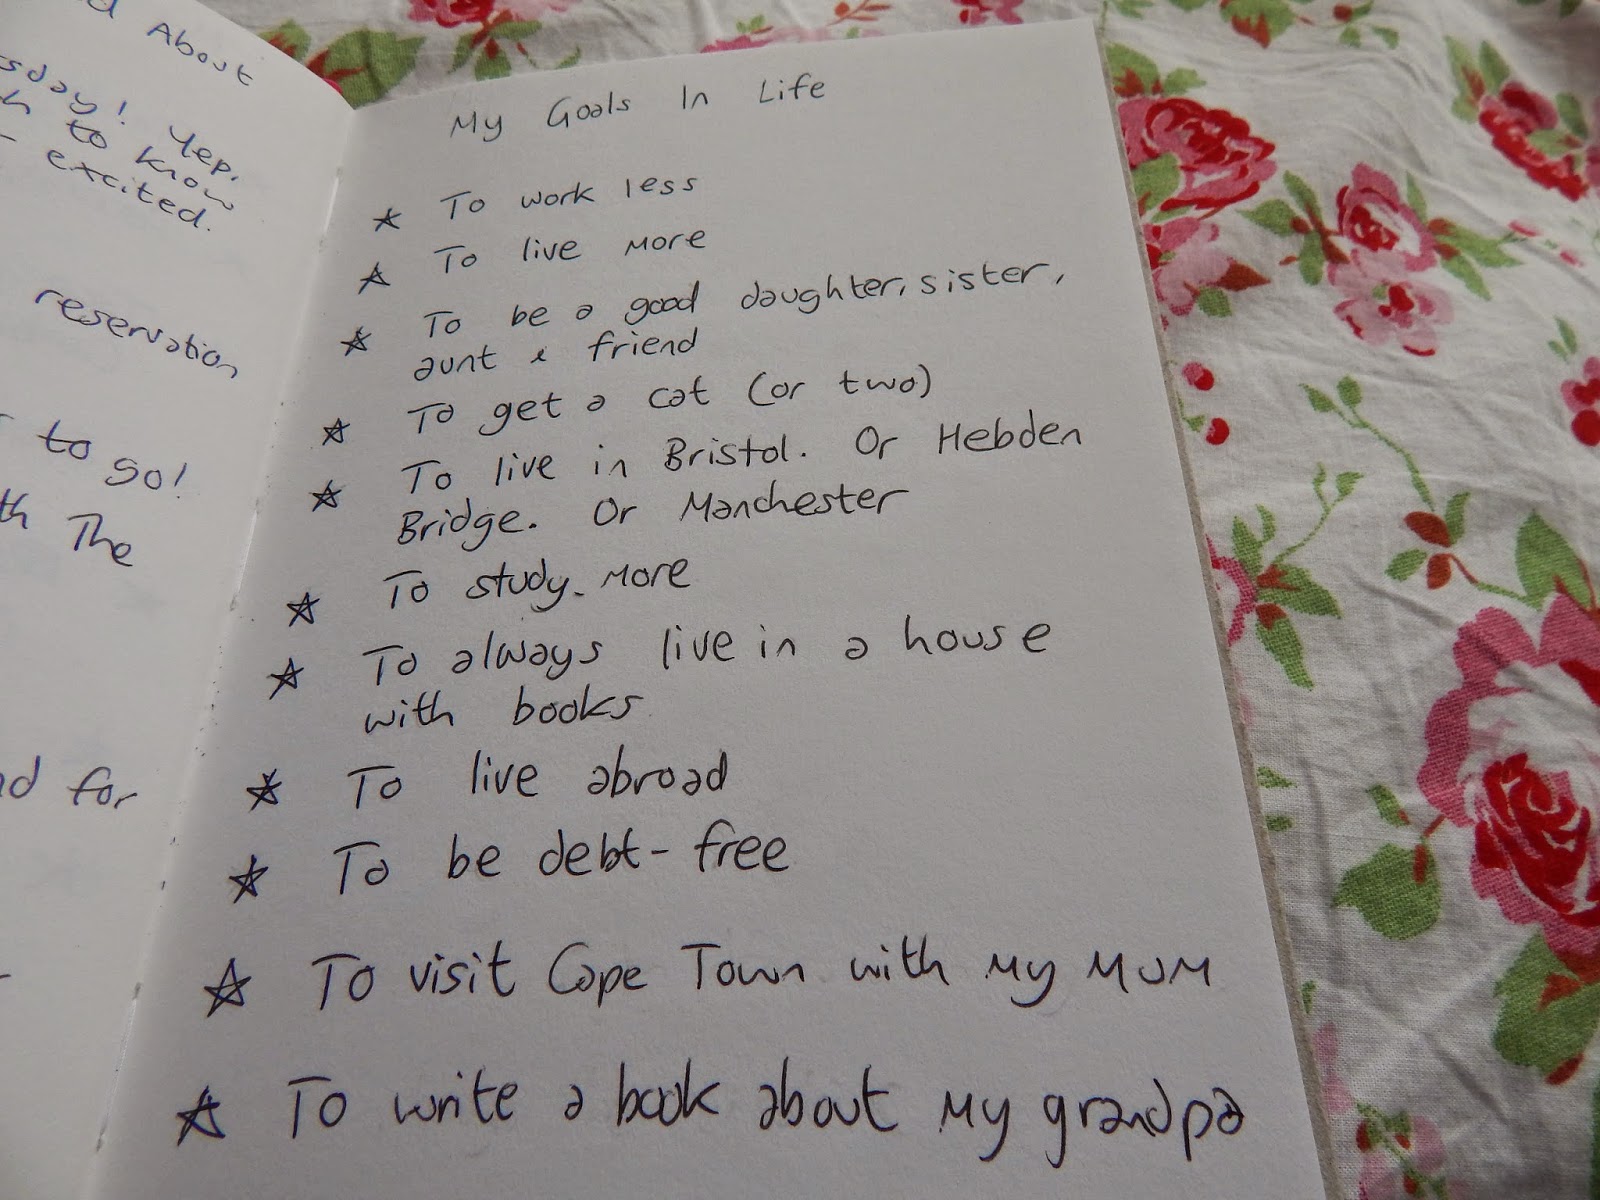 About
sday! Yep,
to know
excited.
reservation
to go!
The
for
My Goals In Life
☆ To work less
☆ To live more
☆ To be a good daughter, sister,
aunt & friend
☆ To get a cat (or two)
☆ To live in Bristol. Or Hebden
Bridge. Or Manchester
☆ To study. More
☆ To always live in a house
with books
☆ To live abroad
☆ To be debt-free
☆ To visit Cape Town with my mum
☆ To write a book about my grandpa